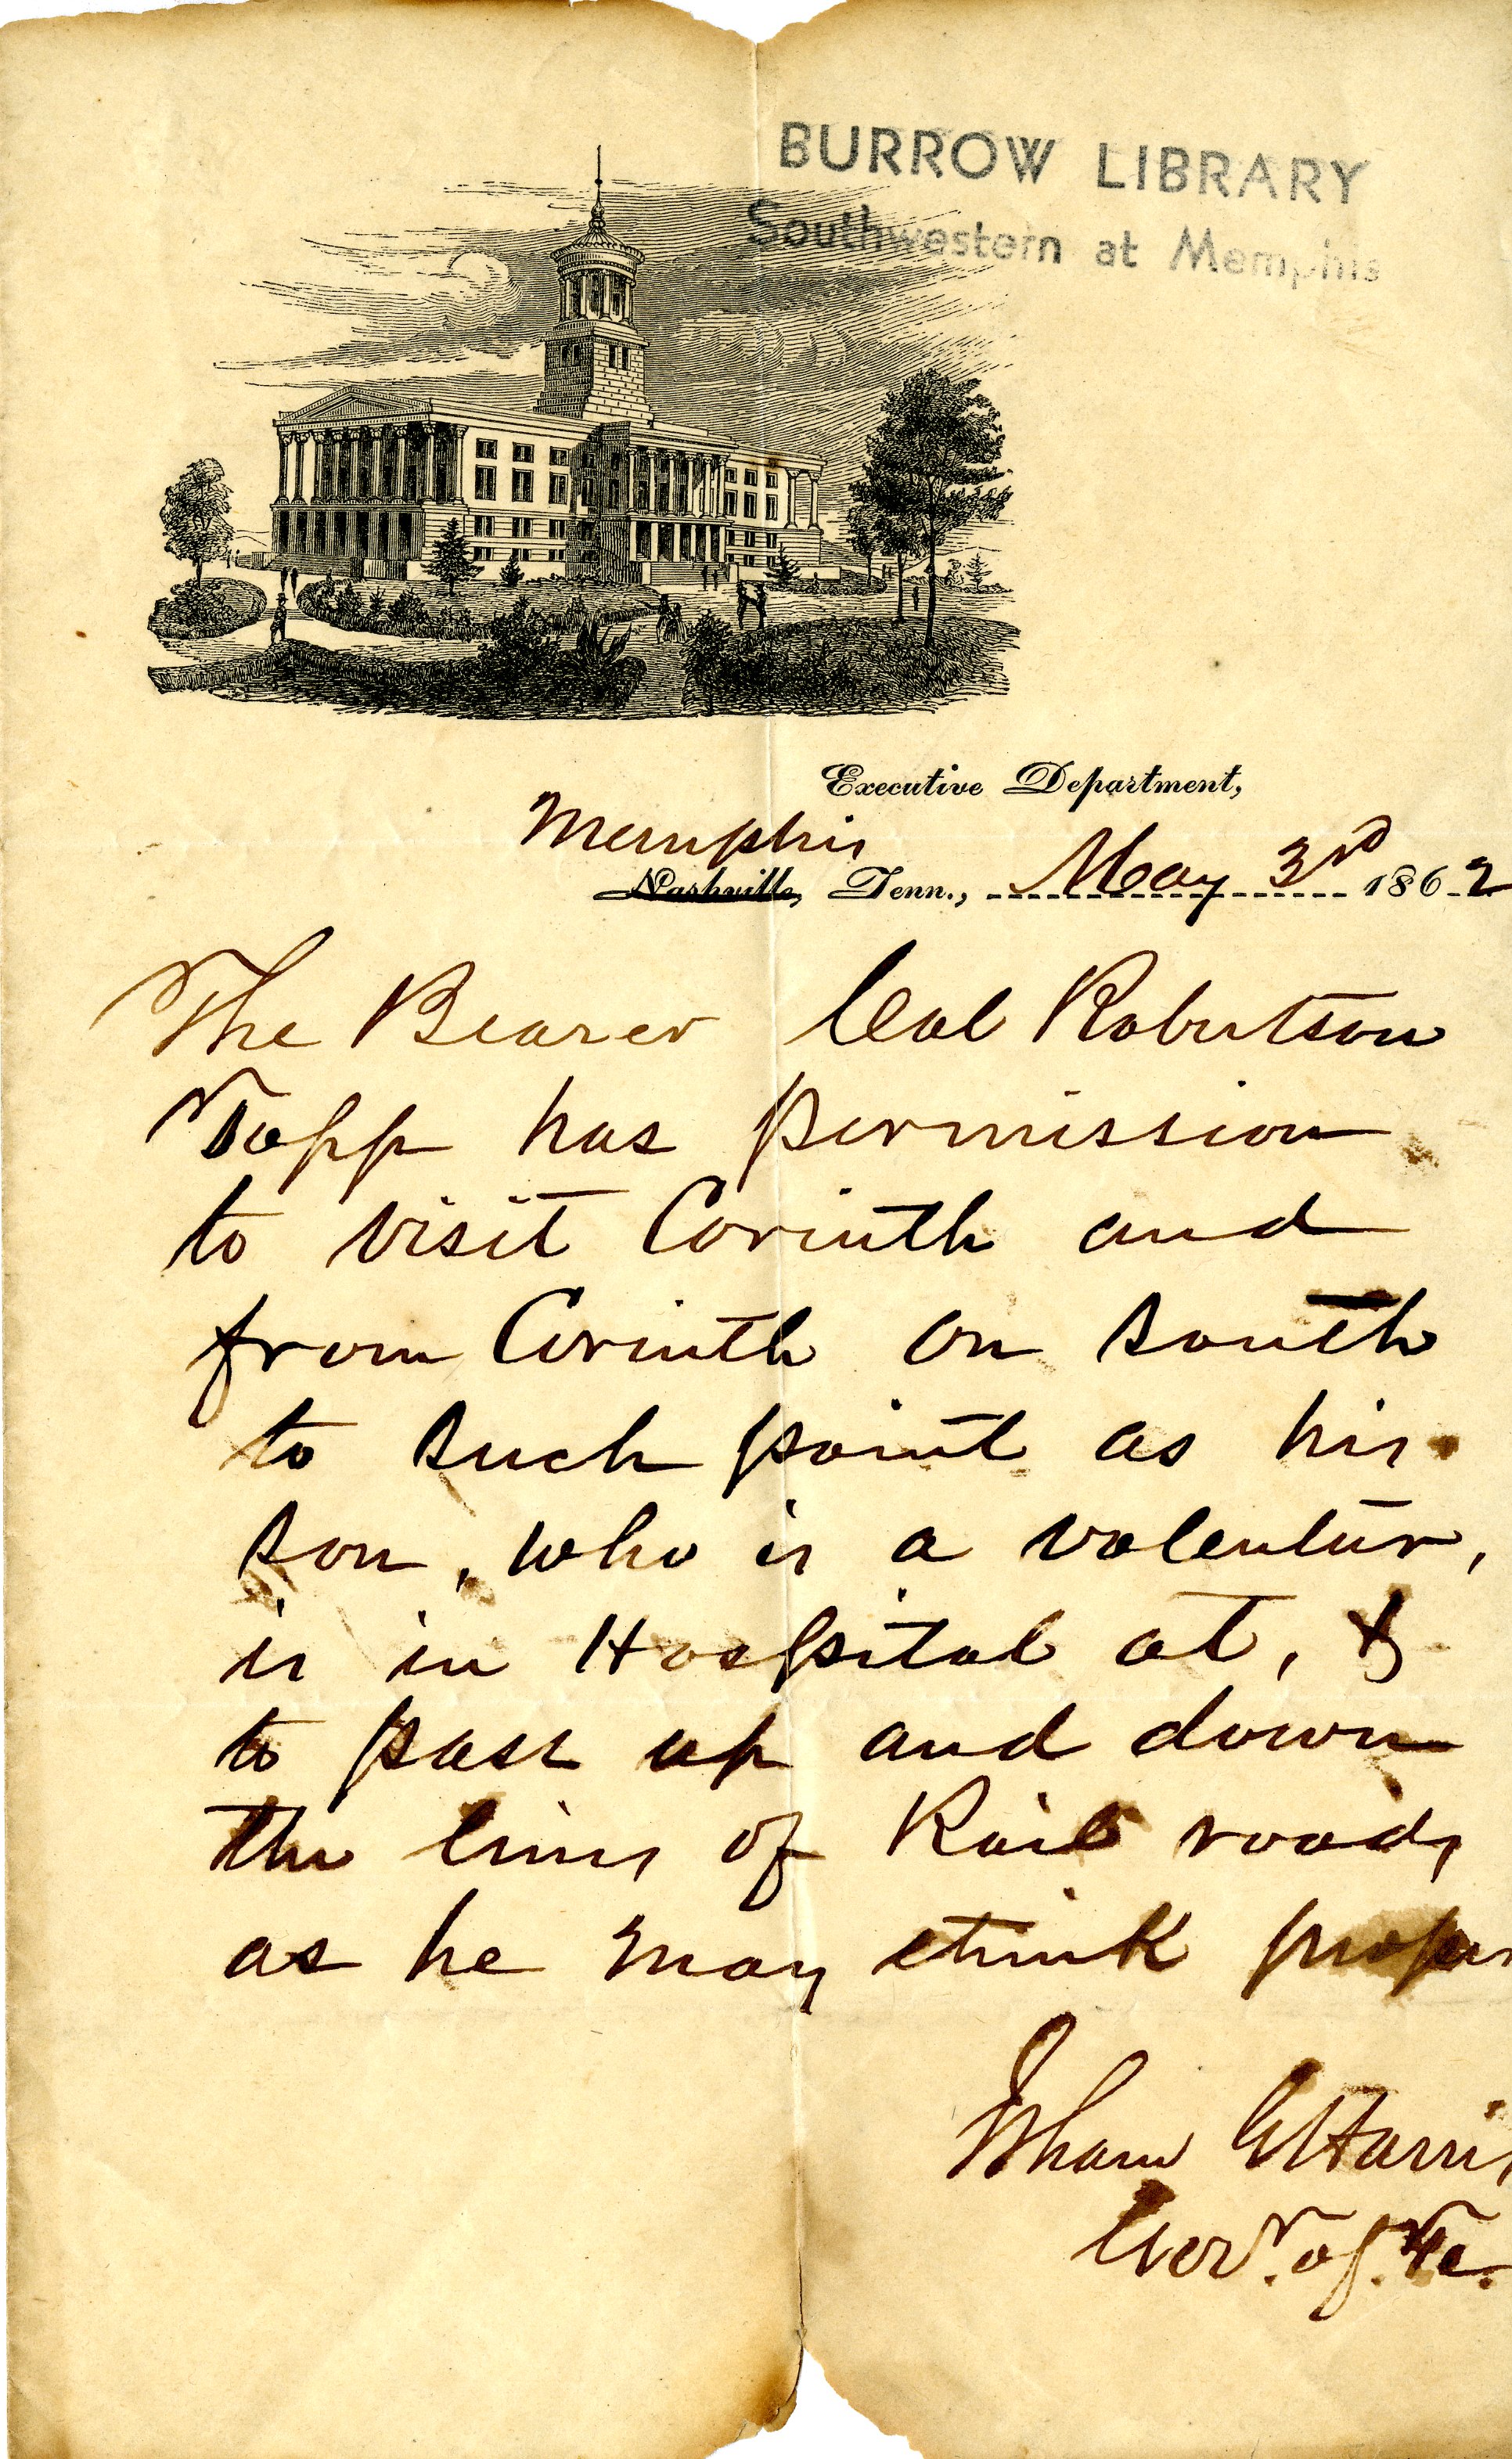 BURROW LIBRARY
Southwestern at Memphis
Executive Department,
Memphis
Nashville, Tenn., May 3rd 1862
The Bearer Col Robertson
Topp has permission
to visit Corinth and
from Corinth on south
to such point as his
son, who is a volentur,
is in Hospital at, &
to pass up and down
the lines of Rail roads
as he may think proper
Isham G Harris
Govr. of Te.